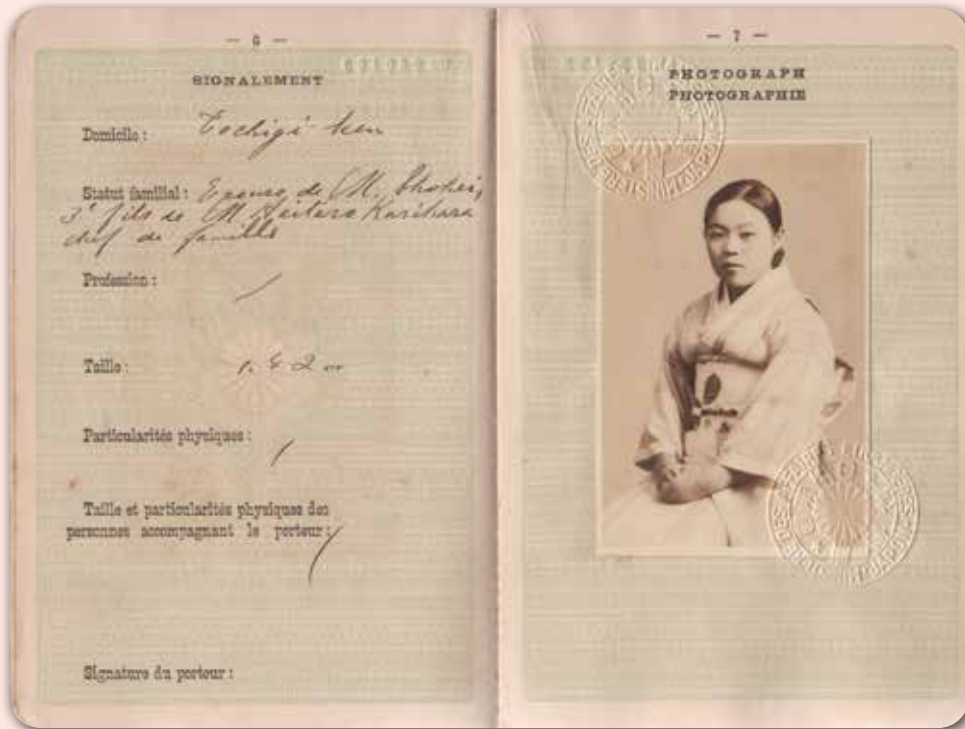 — 6 —
SIGNALEMENT
Domicile : Tochigi-ken
Statut familial : Epouse de M. Shohei,
3e fils de M. Heitaro Kurihara
chef de famille
Profession :
Taille :
Particularités physiques :
Taille et particularités physiques des
personnes accompagnant le porteur :
Signature du porteur :
— 7 —
PHOTOGRAPH
PHOTOGRAPHIE